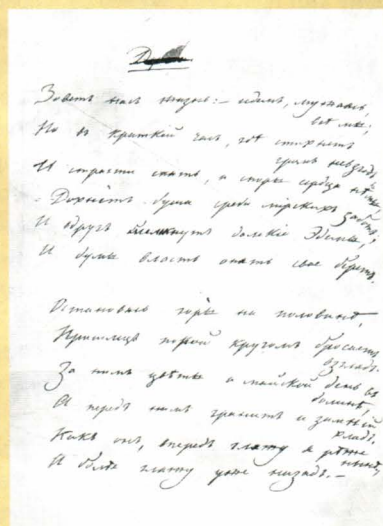 Зоветъ насъ жизнь: — идемъ, мужаясь,
всѣ мы;
Но въ краткой часъ, гдѣ стихнетъ
громъ невзгодъ
И страсти спятъ, и споръ сердца нѣмы —
Дохнетъ душа среди мірскихъ заботъ,
И вдругъ далекіе Эдемы,
И думы власть опять свое беретъ.
Остановясь горы на половинѣ,
Пришлецъ порой кругомъ бросаетъ
взглядъ:
За нимъ цвѣты и майской день въ
долинѣ,
А передъ нимъ гранитъ и зимній
хладъ.
Какъ онъ, впередъ гляжу я рѣже
нынѣ,
И болѣе гляжу уже назадъ. —